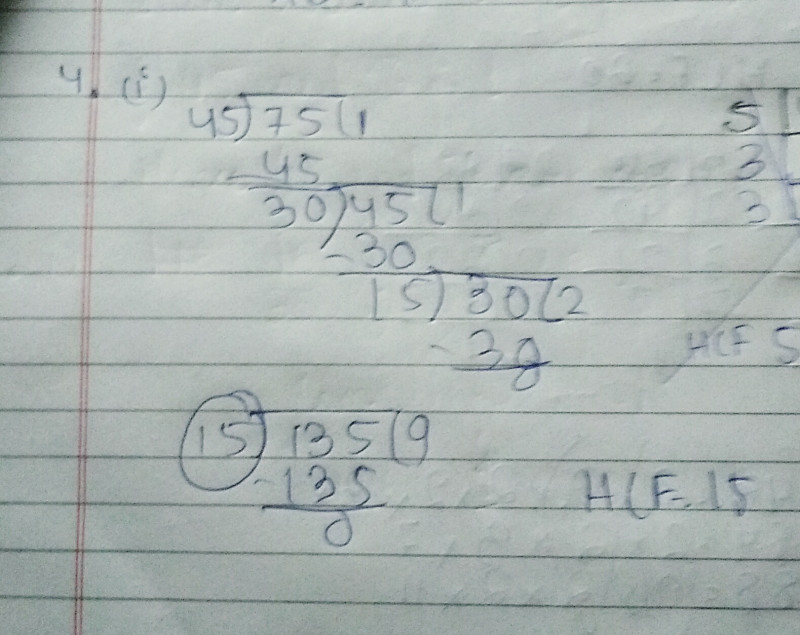 4. (i)
45)75(1 5
-45 3
30)45(1 3
-30
15)30(2
-30 HCF 5
0
15)135(9
-135 HCF=15
0